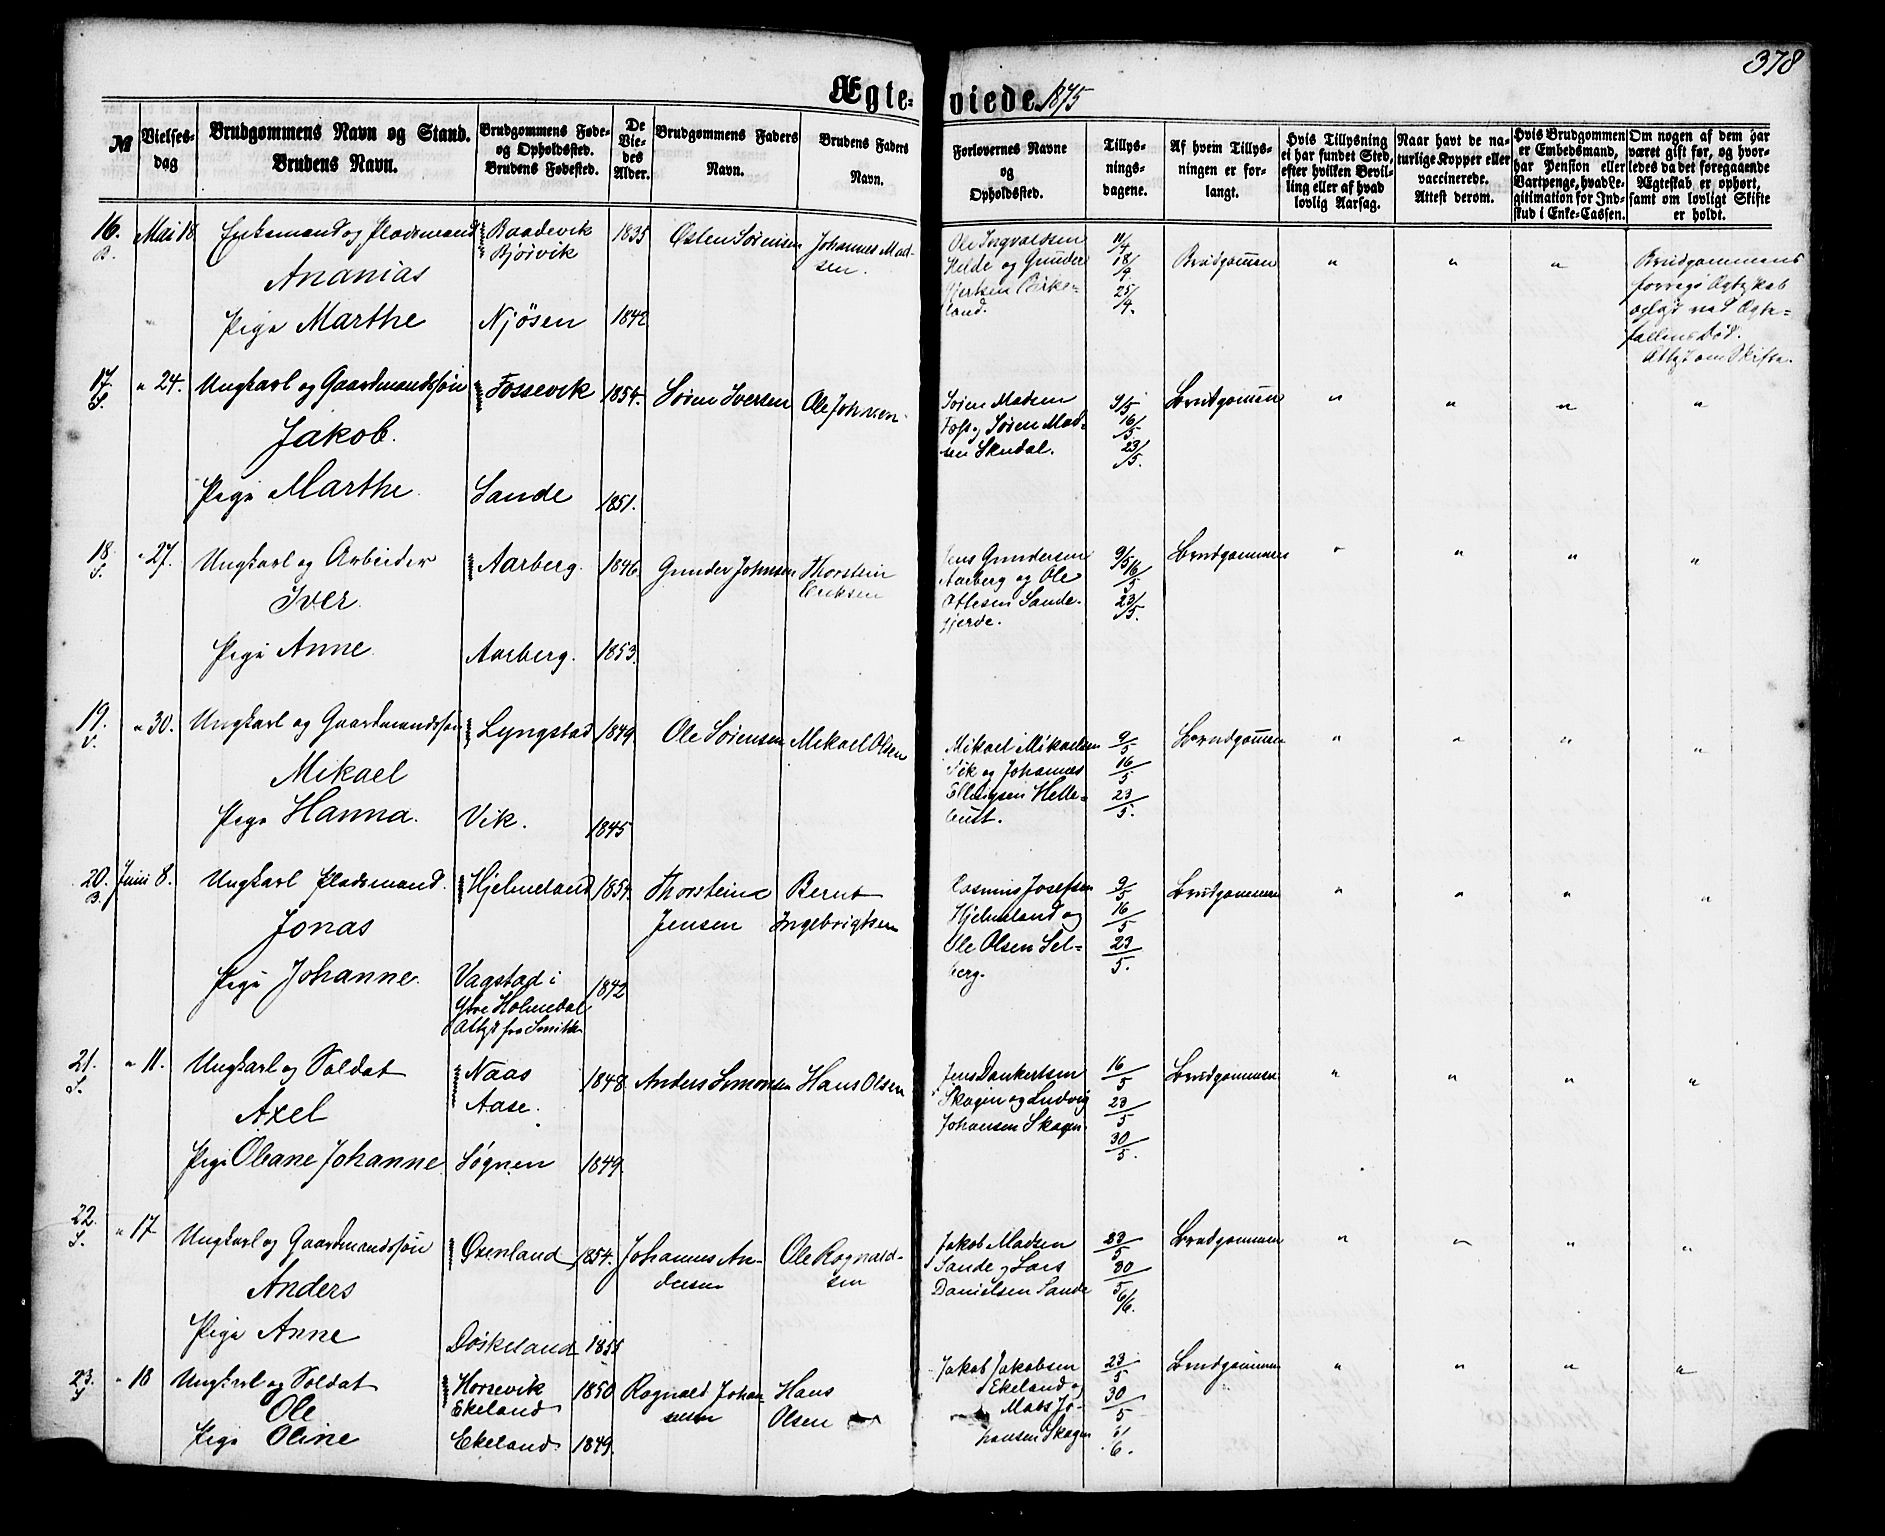 378
Ægteviede 1875
№
Vielsesdag
Brudgommens Navn og Stand.
Brudens Navn.
Brudgommens Føde-
og Opholdssted.
Brudens Fødested.
De
Vie-
des
Alder.
Brudgommens Faders
Navn.
Brudens Faders
Navn.
Forlovernes Navne
og
Opholdssted.
Tillys-
nings-
dagene.
Af hvem Tillys-
ningen er for-
langt.
Hvis Tillysning
ei har fundet Sted,
efter hvilken Bevil-
ling eller af hvad
lovlig Aarsag.
Naar havt de na-
turlige Kopper eller
vaccinerede.
Attest derom.
Hvis Brudgommen
er Embedsmand,
har Pension eller
Vartpenge, hvad Le-
gitimation for Ind-
skud i Enke-Cassen.
Om nogen af dem har
været gift før, og hvor-
ledes da det foregaaende
Ægteskab er ophørt,
samt om lovligt Skifte
er holdt.
16. B. Mai 18 Enkemand og Pladsmand Raadevik 1835 Østen Sørensen Johannes Mad-
Bjørvik sen.
Ananias
Pige Marthe Njøsen 1842
Ole Ingvaldsen 11/4 Brudgommen " " " Brudgommens
Helde og Gunder 18/4 forrige Ægteskab
Gjertsen Birke- 25/4. opløst ved Ægte-
land. fællens Død.
Attest om Skifte.
17. S. " 24. Ungkarl og Gaardmandssøn Fossevik 1854. Søren Iversen Ole Johnsen
Jakob.
Pige Marthe Sande 1851.
Søren Madsen 9/5 Brudgommen " " " "
Foss og Søren Mad- 16/5
sen Skudal. 23/5.
18. S. " 27. Ungkarl og Arbeider Aarberg. 1846 Gunder Johnsen Thorstein
Iver Eriksen
Pige Anne Aarberg. 1853.
Jens Gundersen 9/5 Brudgommen " " " "
Aarberg og Ole 16/5
Ottesen Sande- 23/5.
gjerde.
19. V. " 30. Ungkarl og Gaardmandssøn Lyngstad 1849. Ole Sørensen Mikael Olsen
Mikael
Pige Hanna. Vik. 1845
Mikael Mikaelsen 9/5 Brudgommen " " " "
Vik og Johannes 16/5
Ellingsen Helle- 23/5.
bust.
20. B. Juni 8. Ungkarl Pladsmand. Hjelmeland 1854. Thorstein Bernt
Jonas Jensen Ingebrigtsen
Pige Johanne. Vagstad i 1842
Ytre Holmedal
Attest fra Smith
Rasmus Josefsen 9/5 Brudgommen " " " "
Hjelmeland og 16/5
Ole Olsen Sel- 23/5.
berg.
21. S. " 11. Ungkarl og Soldat Naas 1848. Anders Simonsen Hans Olsen
Axel Aase.
Pige Oleane Johanne Søgnen 1849.
Jens Dankertsen 16/5 Brudgommen " " " "
Skagen og Ludvig 23/5
Johansen Skagen. 30/5.
22. S. " 17 Ungkarl og Gaardmandssøn Oxenland 1854. Johannes An- Ole Rognald-
dersen sen
Anders
Pige Anne Døskeland 1855
Jakob Madsen 23/5 Brudgommen " " " "
Sande og Lars 30/5
Danielsen Sande 6/6.
23. S " 18 Ungkarl og Soldat Horsevik 1850 Rognald Johan- Hans
Ole Ekeland sen Olsen
Pige Oline Ekeland 1849.
Jakob Jakobsen 23/5 Brudgommen " " " "
Ekeland og 30/5
Mads Jo- 6/6.
hansen Skagen